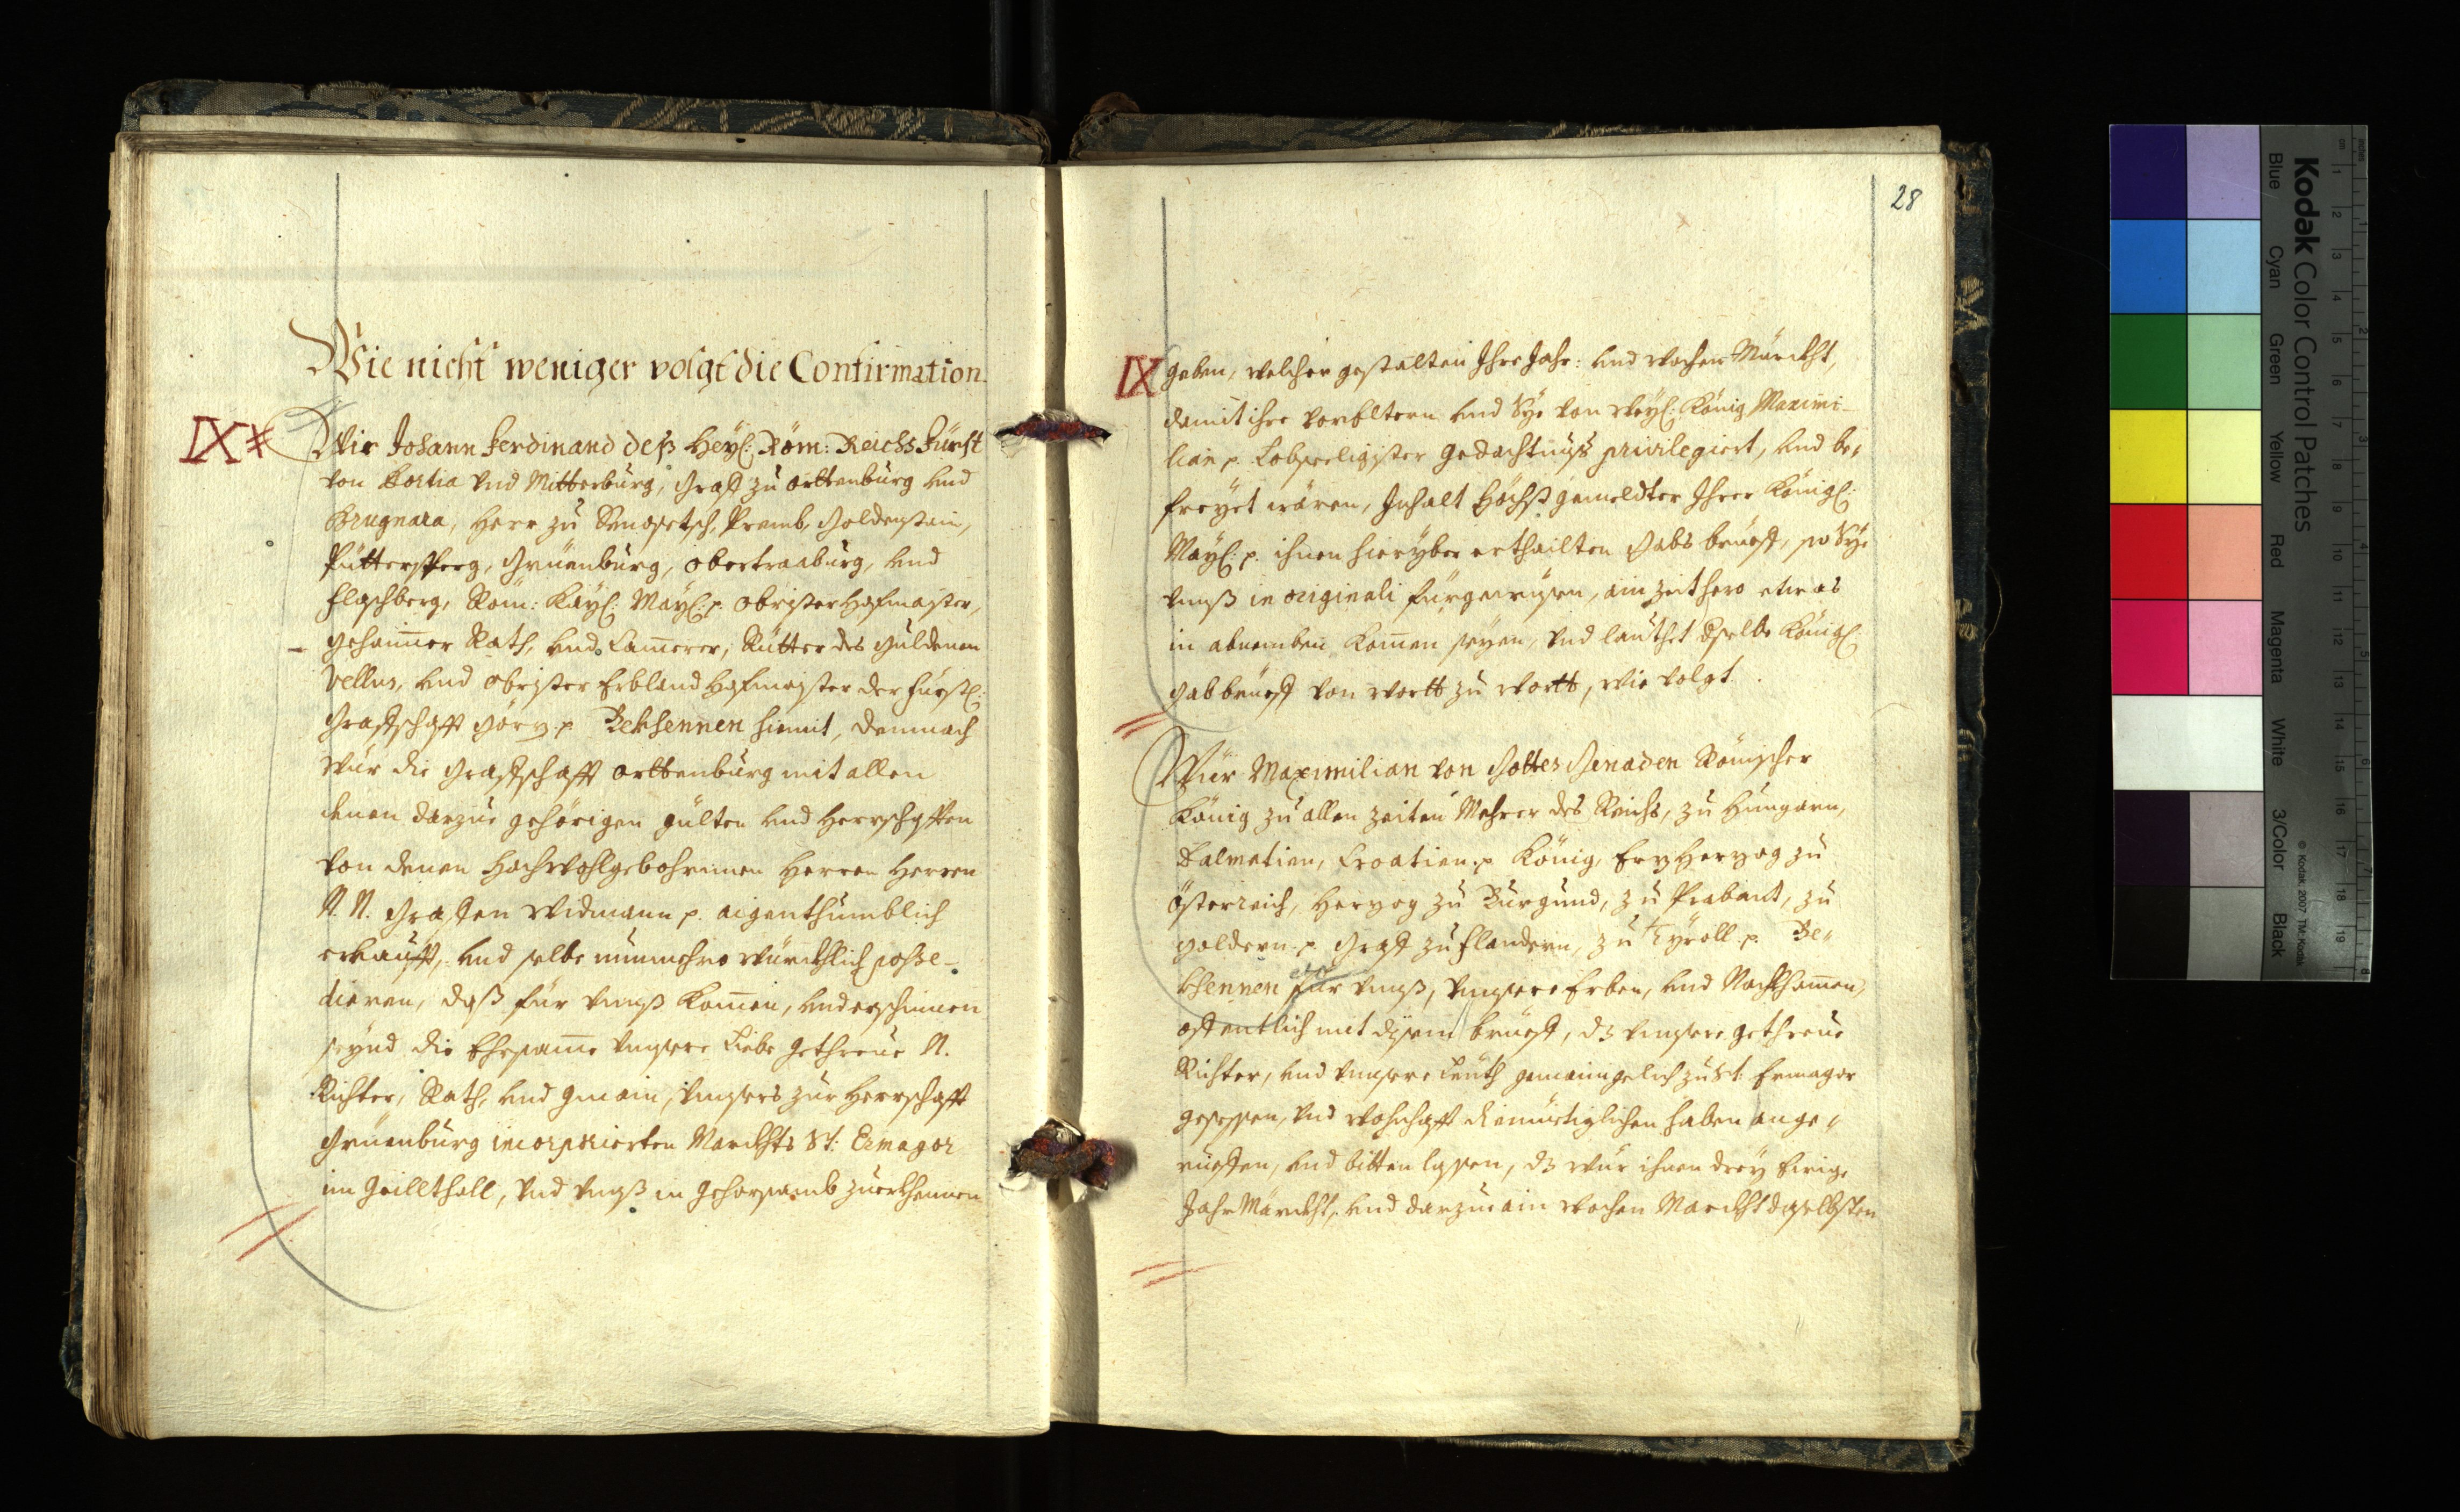 Wie nicht weniger volgt die Confirmation.
IX #
Wir Johann Ferdinand deß Heÿl: Röm: Reichs Fürst
von Portia vnd Mitterburg, Graf zu Orttenburg vnd
Brugnara, Herr zu Senosetsch, Premb, Goldenstain,
Füttersperg, Grüenburg, Obertraaburg, vnd
Flaschberg, Röm: Kaÿl: Maÿl: p. Obrister Hofmaister,
gehaim̄er Rath, vnd Cam̄erer, Rütter des Guldenen
Vellus, vnd Obrister Erbland Hofmaister der Fürstl:
Grafschafft Görz p. Bekhennen hiemit, demnach
Wür die Grafschafft Orttenburg mit allen
denen darzue gehörigen gülten vnd Herrschafften
von denen Hochwohlgebohrnnen Herren Herren
N. N. Grafen Widmann p. aigenthumblich
erkaufft, vnd selbe nunmehro würckhlich poße-
dieren, daß für vnnß kom̄en, vnd erschinnen
seynd die Ehrsam̄e vnnsere Liebe gethreue N.
Richter, Rath, vnd Gmain, vnnsers zur Herrschafft
Grüenburg incorporierten Marckhts St: Ermagor
im Geillthall, vnd vnnß in gehorsamb zuerkhennen
28
IX geben, welcher gestalten Ihre Jahr: vnd Wochen Märckht,
damit ihre Vorelltern vnd Sÿe von Weÿl: König Maximi-
lian p. Lobseeligister Gedachtnuß privilegiert, vnd be-
freÿet wären, Inhalt Höchstgemeldter Ihrer Königl:
Maÿl: p. ihnen hierÿber erthailten Gabs brüeff, so Sÿe
vnnß in originali fürgewisen, ain Zeithero etwas
in abnemben kom̄en seyen, vnd lauthet dselbe Königl:
Gabbrüeff von wortt zu wortt, wie volgt.
Wür Maximilian von Gottes Genaden Römischer
König zu allen Zeiten Mehrer des Reichs, zu Hungarn,
Dalmatien, Croatien p. König, ErzHerzog zu
Österreich, Herzog zu Burgund, zu Prabant, zu
Geldern p. Graf zu Flandern, zu Tÿroll p. Be-
khennen für vnnß, vnnsere Erben, vnd Nachkhom̄en,
offentlich mit disem brüeff, dz vnnsere gethreue
Richter, vnd vnnsere Leuth gemaingelich zu St: Ermagor
gesessen, vnd wohnhafft diemüetiglichen haben ange-
rueffen, vnd bitten lassen, dz wür ihnen dreÿ Ewige
Jahr Märckht, vnd darzue ain Wochen Marckht daselbsten
Kodak Color Control Patches
© Kodak, 2007 TM: Kodak
Blue Cyan Green Yellow Red Magenta White 3/Color Black